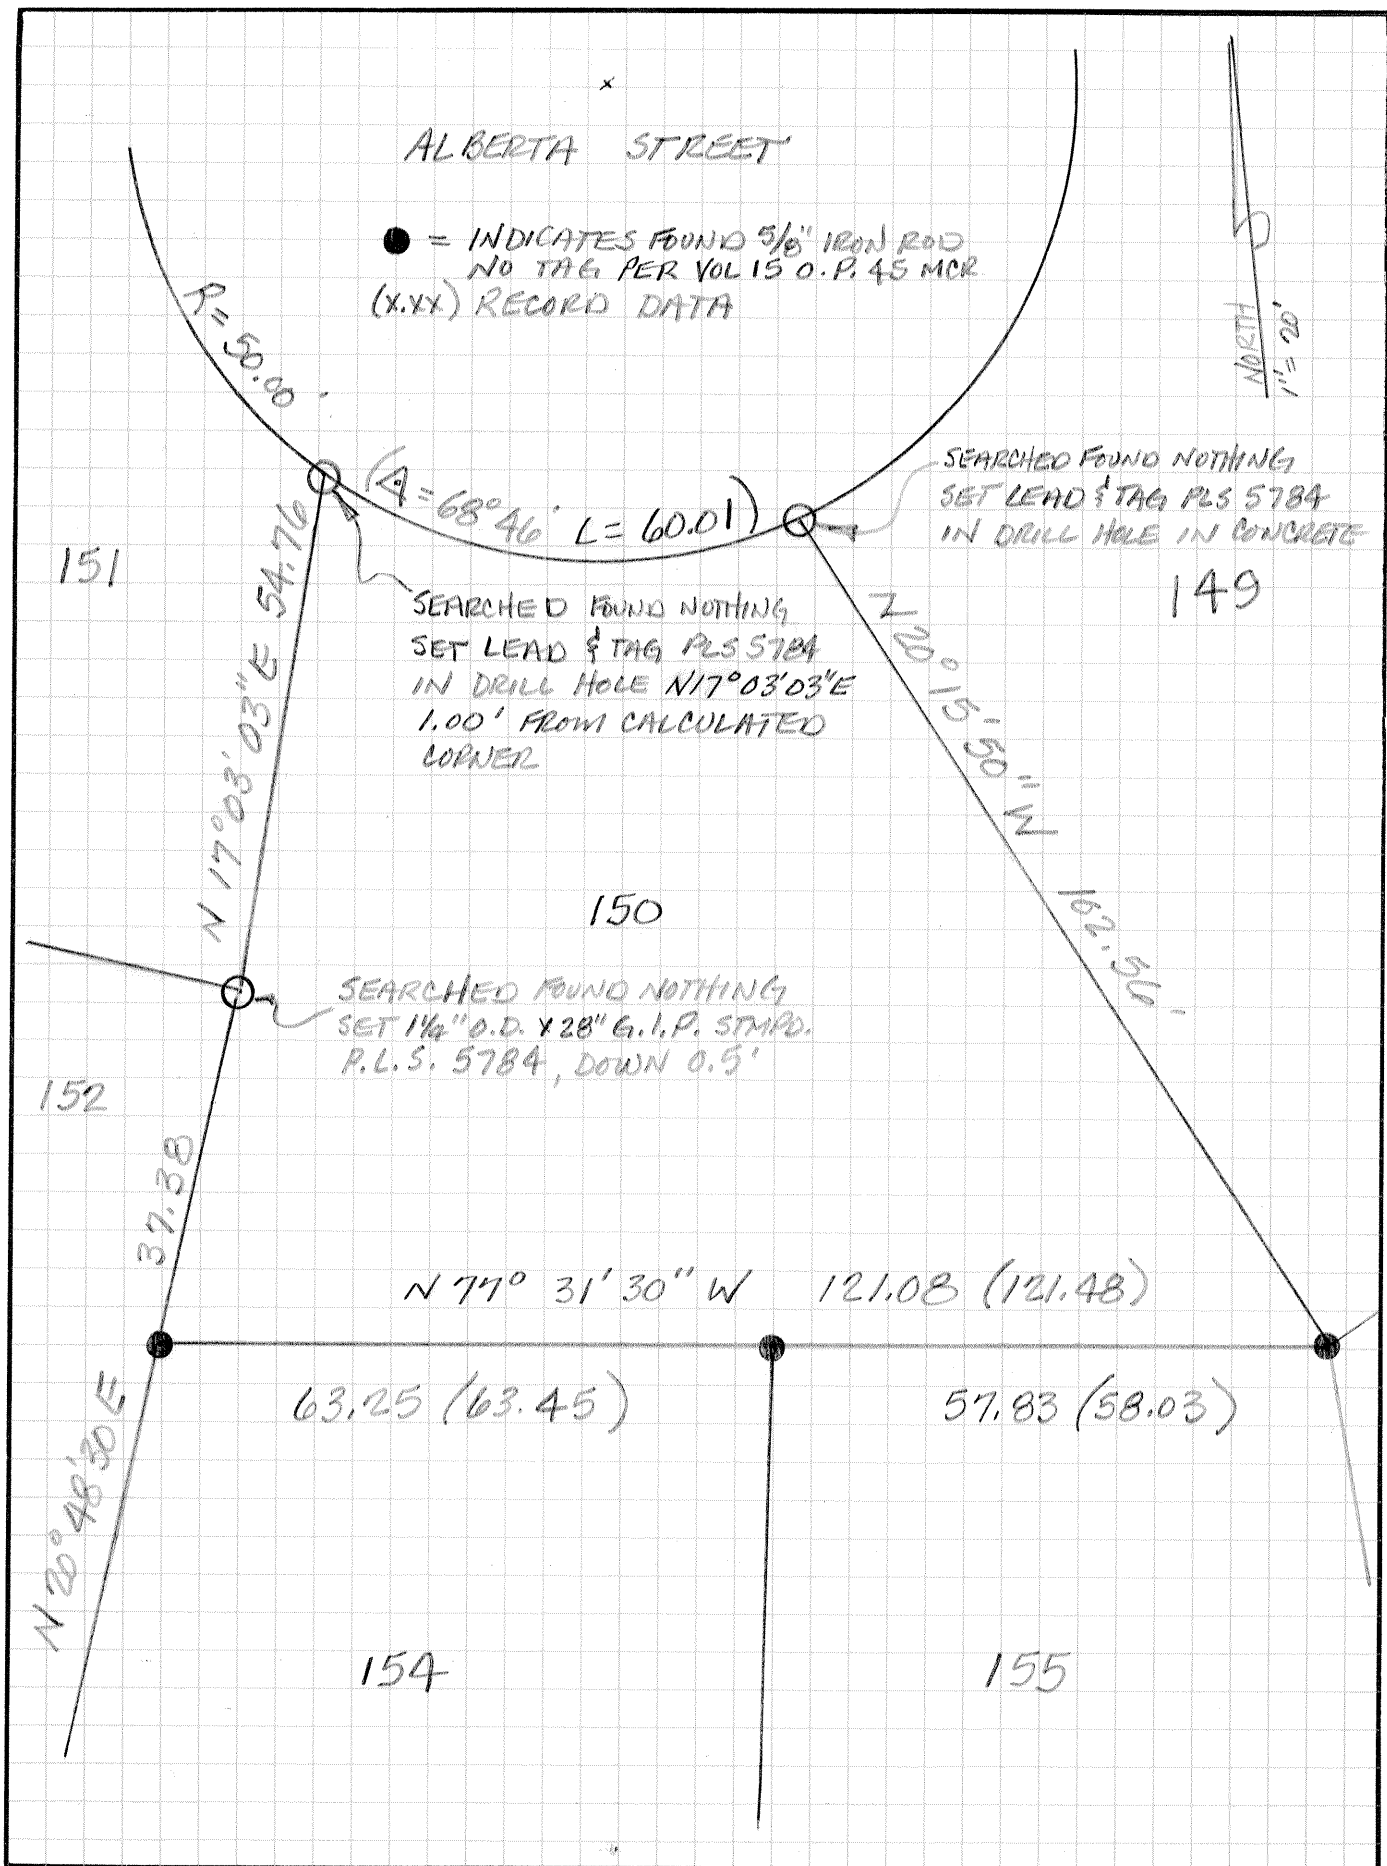 ALBERTA STREET
● = INDICATES FOUND 5/8" IRON ROD
NO TAG PER VOL 15 O.P. 45 MCR
(X.XX) RECORD DATA
NORTH
1"= 20'
R= 50.00'
(Δ = 68°46' L= 60.01)
SEARCHED FOUND NOTHING
SET LEAD & TAG PLS 5784
IN DRILL HOLE IN CONCRETE
149
151
N 17° 03' 03" E 54.76
SEARCHED FOUND NOTHING
SET LEAD & TAG PLS 5784
IN DRILL HOLE N17°03'03"E
1.00' FROM CALCULATED
CORNER
N 20° 15' 50" W 102.56'
150
SEARCHED FOUND NOTHING
SET 1¼" O.D. X 28" G.I.P. STMPD.
P.L.S. 5784, DOWN 0.5'
152
37.38
N 77° 31' 30" W 121.08 (121.48)
63.25 (63.45)
57.83 (58.03)
N 20° 48' 30 E
154
155